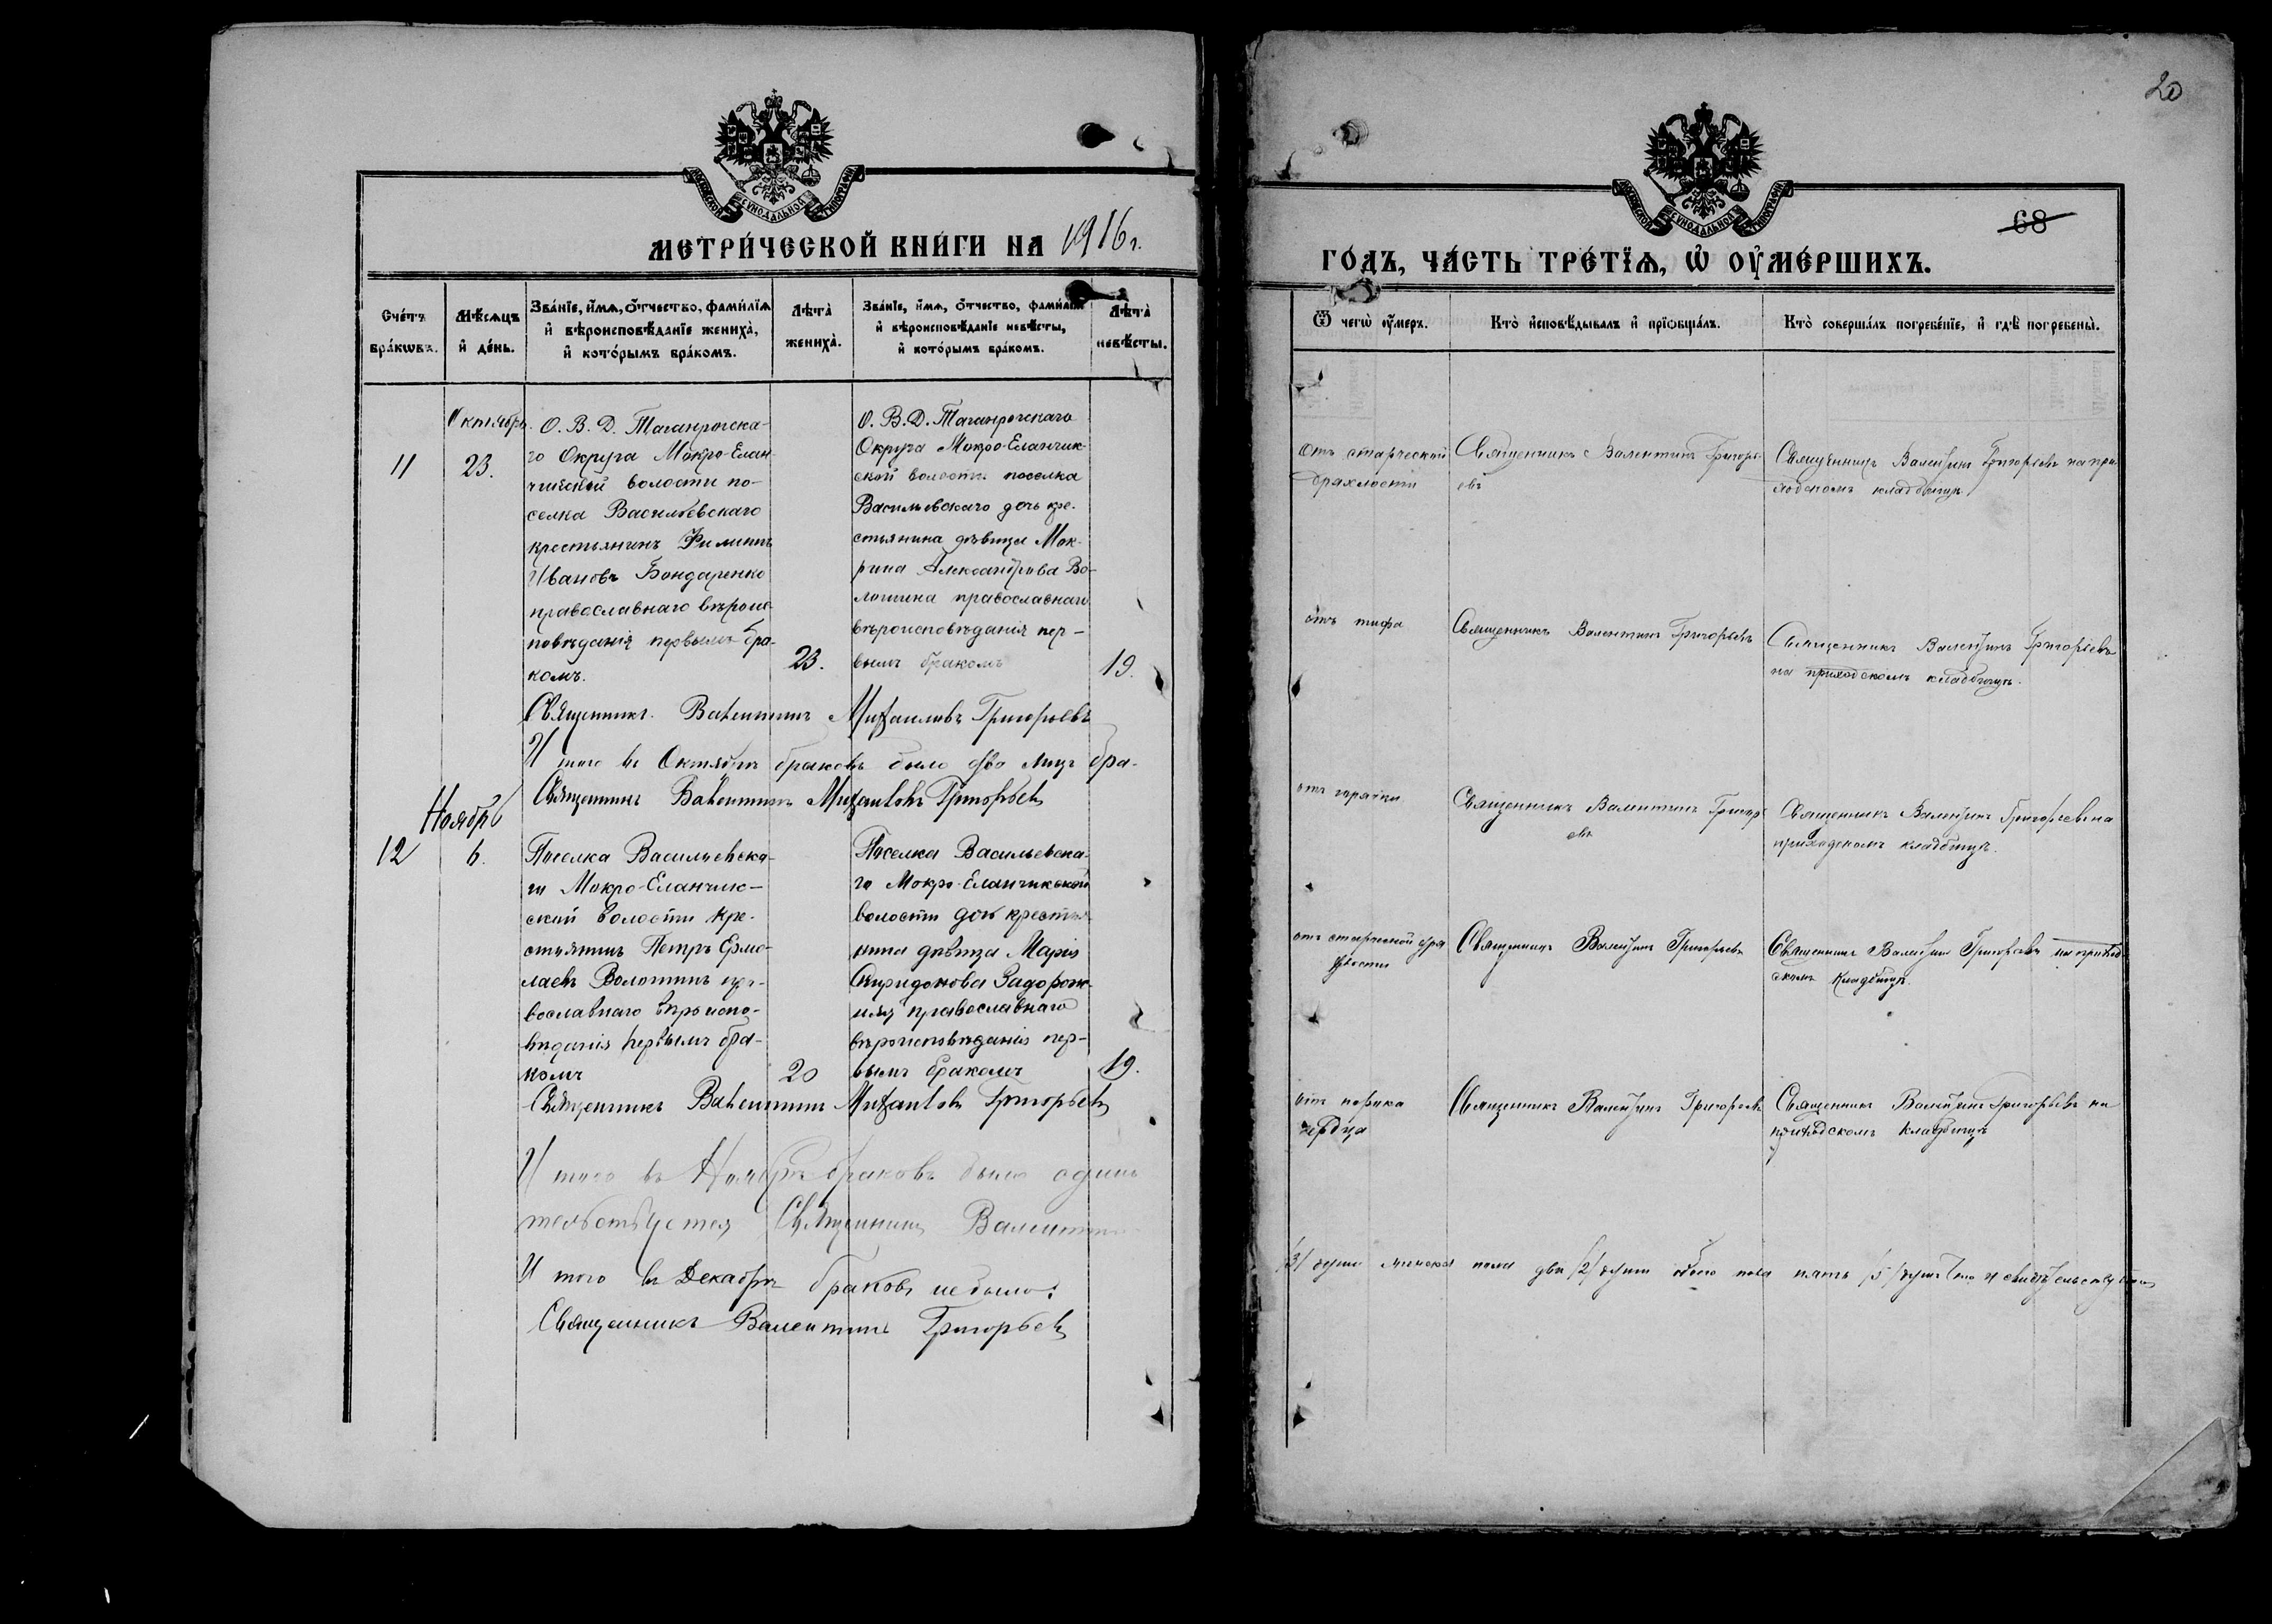 20
МОСКОВСКОЙ СѴНОДАЛЬНОЙ ТИПОГРАФІИ
МЕТРИ́ЧЕСКОЙ КНИ́ГИ НА 1916 г.
Сче́тъ бра́кωвъ.
Мѣ́сѧцъ и҆ де́нь.
Зва́нїе, и҆́мѧ, ѻ҆́тчество, фами́лїѧ
и҆ вѣроисповѣ́данїе жениха̀,
и҆ кото́рымъ бра́комъ.
Лѣта̀ жениха̀.
Зва́нїе, и҆́мѧ, ѻ҆́тчество, фами́лїѧ
и҆ вѣроисповѣ́данїе невѣ́сты,
и҆ кото́рымъ бра́комъ.
Лѣта̀ невѣ́сты.
Октябрь.
11
23.
О. В. Д. Таганрогска-
го Округа Мокро-Елан
чикской волости по-
селка Васильевскаго
крестьянинъ Филиппъ
Ивановъ Бондаренко
православнаго вѣроис-
повѣданія первымъ бра-
комъ.
23.
О. В. Д. Таганрогскаго
Округа Мокро-Еланчик-
ской волости поселка
Васильевскаго дочь кре-
стьянина дѣвица Мак-
рина Александрова Во-
лошина православнаго
вѣроисповѣданія пер-
вымъ бракомъ
19.
Священникъ Валентинъ Михаиловъ Григорьевъ
Итого въ Октябрѣ браковъ было два бра-
Священникъ Валентинъ Михаиловъ Григорьевъ
Ноябрь
12
6.
Поселка Васильевска-
го Мокро-Еланчик-
ской волости кре-
стьянинъ Петръ Ермо-
лаевъ Волошинъ пра-
вославнаго вѣроиспо-
вѣданія первымъ бра-
комъ
20
Поселка Васильевска-
го Мокро-Еланчикской
волости дочь крестья-
нина дѣвица Марія
Спиридонова Задорож-
няя православнаго
вѣроисповѣданія пер-
вымъ бракомъ
19.
Священникъ Валентинъ Михаиловъ Григорьевъ
Итого въ Ноябрѣ браковъ было одинъ
тельствуетея Священникъ Валентин
Итого въ Декабрѣ браковъ не было.
Священникъ Валентинъ Григорьевъ
МОСКОВСКОЙ СѴНОДАЛЬНОЙ ТИПОГРАФІИ
68
ГО́ДЪ, ЧА́СТЬ ТРЕ́ТЇѦ, Ѡ҆ ОУ҆МЕ́РШИХЪ.
Ѿ чегѡ̀ ᲂу҆́меръ.
Кто̀ и҆сповѣ́дывалъ и҆ прїωбща́лъ.
Кто̀ соверша́лъ погребе́нїе, и҆ гдѣ̀ погребены̀.
отъ старческой
дряхлости
Священникъ Валентинъ Григорь-
евъ
Священникъ Валентинъ Григорьевъ на при-
ходскомъ кладбищѣ
отъ тифа
Священникъ Валентинъ Григорьевъ
Священникъ Валентинъ Григорьевъ
на приходскомъ кладбищѣ.
отъ горячки
Священникъ Валентинъ Григор
евъ
Священникъ Валентинъ Григорьевъ на
приходскомъ кладбищѣ.
отъ старческой дря
хлости
Священникъ Валентинъ Григорьевъ
Священникъ Валентинъ Григорьевъ на приход
скомъ кладбищѣ.
отъ порока
сердца
Священникъ Валентинъ Григорьевъ
Священникъ Валентинъ Григорьевъ на
приходскомъ кладбищѣ
/3/ души женска пола двѣ /2/ души обоего пола пять /5/ душъ что и свидѣтельствуется